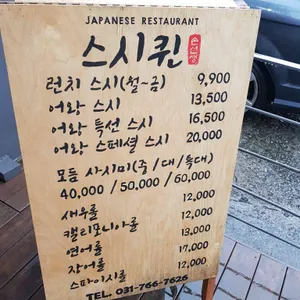 JAPANESE RESTAURANT
스시퀸
런치 스시(월~금) 9,900
어왕 스시 13,500
어왕 특선 스시 16,500
어왕 스페셜 스시 20,000
모듬 사시미(중/대/특대)
40,000 / 50,000 / 60,000
새우롤 12,000
캘리포니아롤 12,000
연어롤 13,000
장어롤 17,000
스파이시롤 12,000
TEL. 031-766-7626